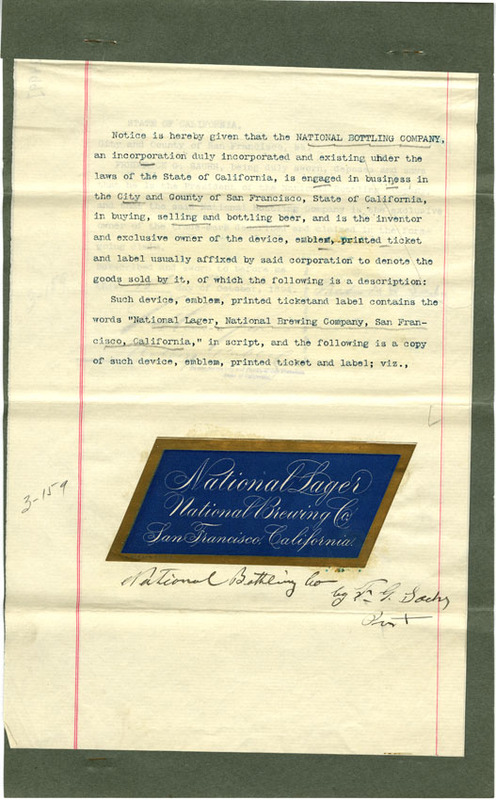 Notice is hereby given that the NATIONAL BOTTLING COMPANY,
an incorporation duly incorporated and existing under the
laws of the State of California, is engaged in business in
the City and County of San Francisco, State of California,
in buying, selling and bottling beer, and is the inventor
and exclusive owner of the device, emblem, printed ticket
and label usually affixed by said corporation to denote the
goods sold by it, of which the following is a description:
Such device, emblem, printed ticketand label contains the
words "National Lager, National Brewing Company, San Fran-
cisco, California," in script, and the following is a copy
of such device, emblem, printed ticket and label; viz.,
3-159
National Lager
National Brewing Co
San Francisco. California.
National Bottling Co
by